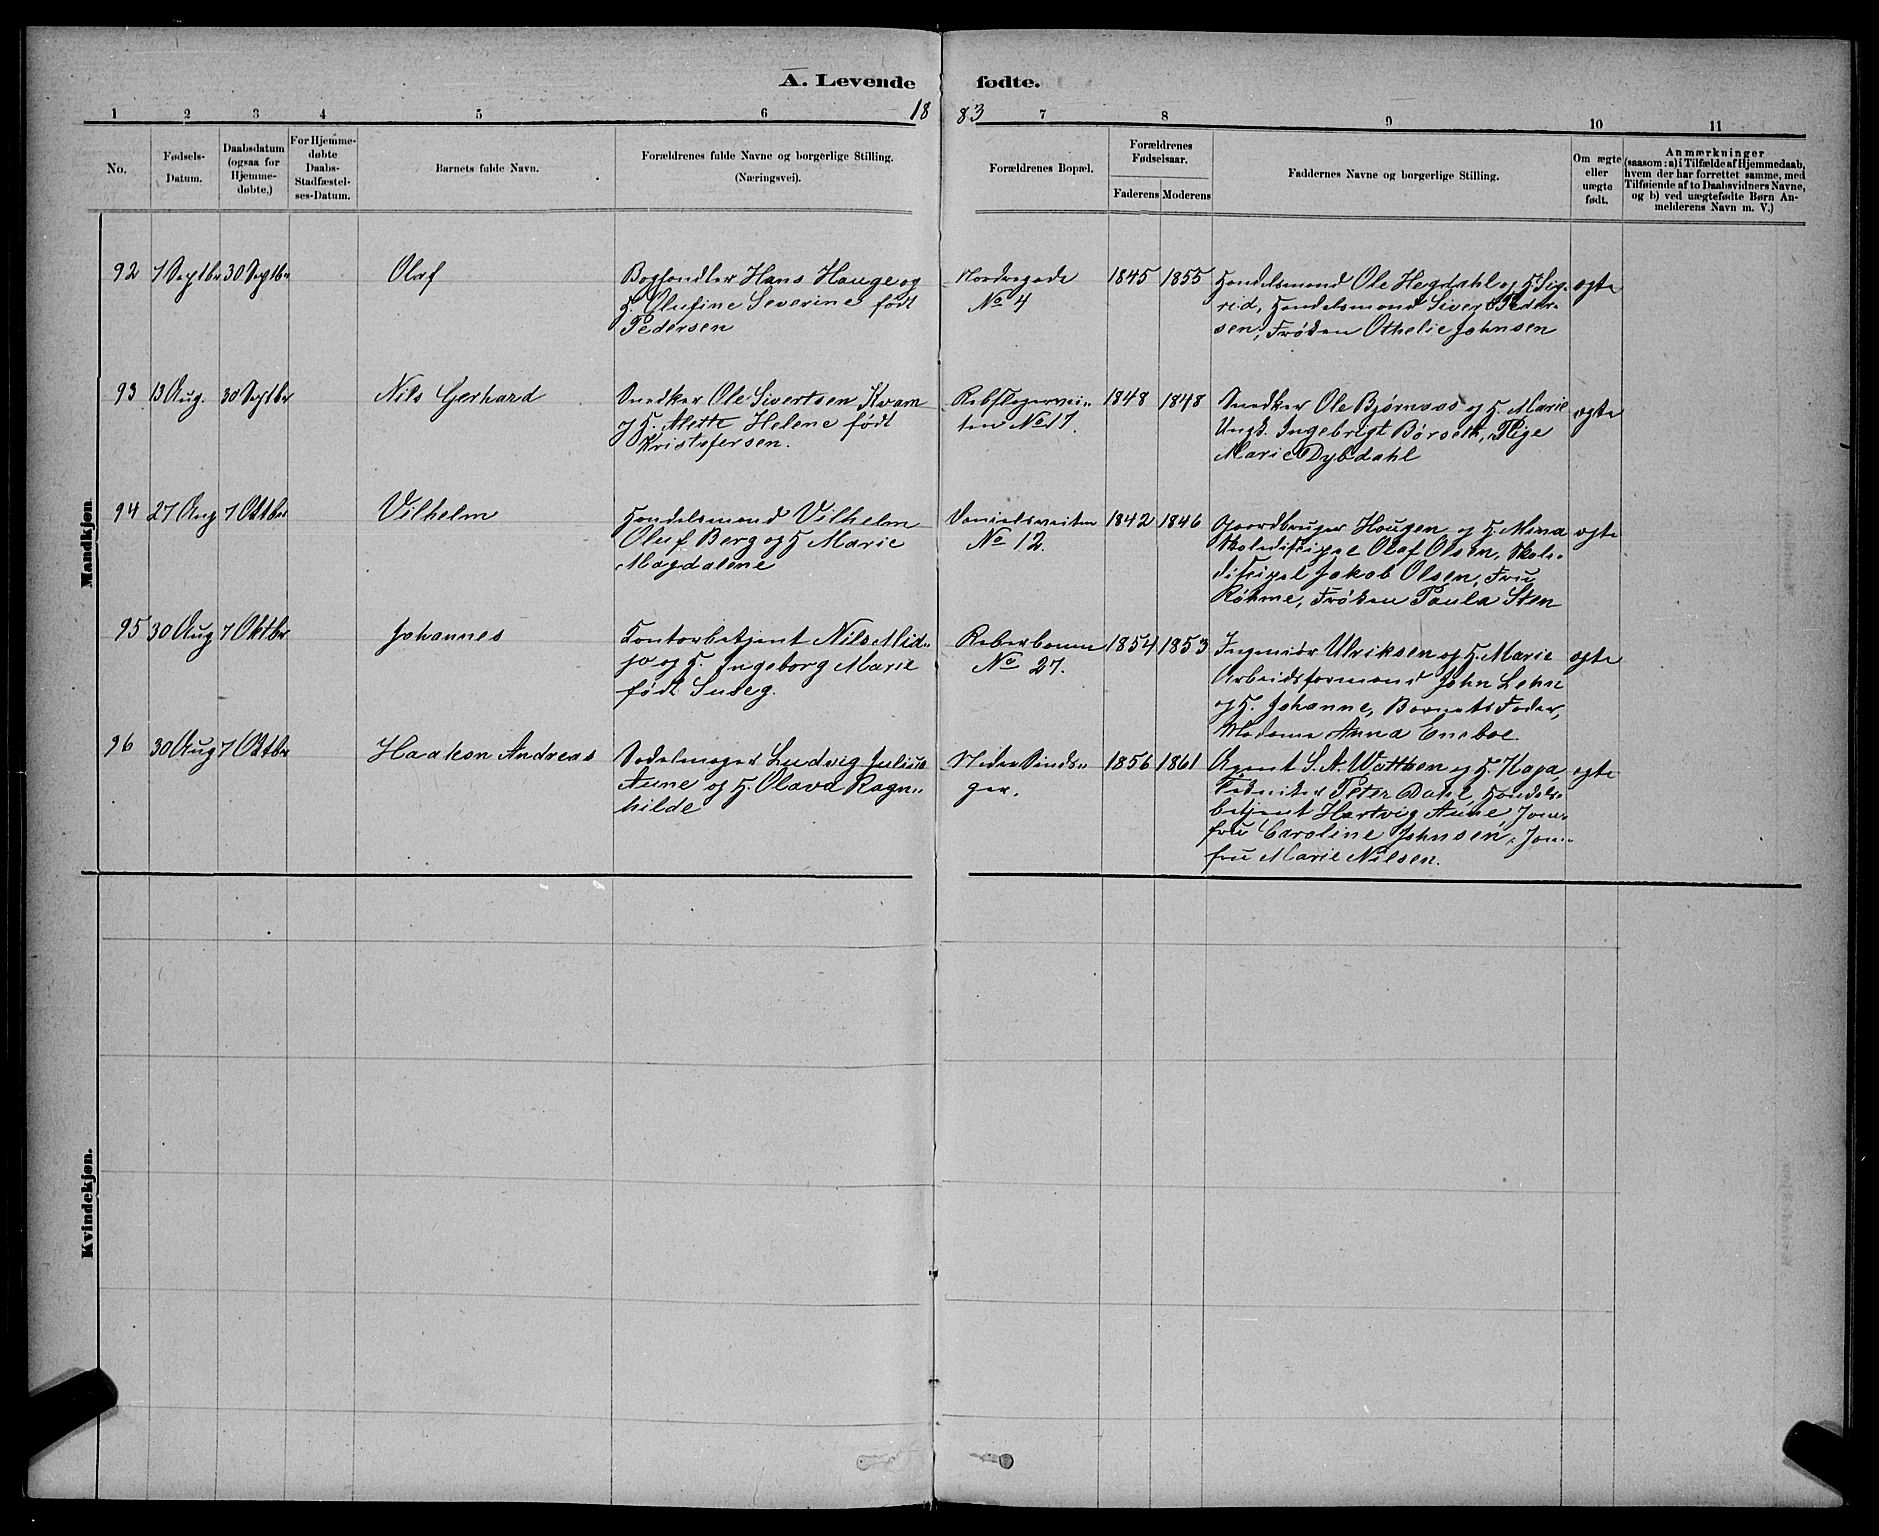 A. Levende fødte.
1883
1 2 3 4 5 6 7 8 9 10 11
No.
Fødsels-
Datum.
Daabsdatum
(ogsaa for
Hjemme-
døbte.)
For Hjemme-
døbte
Daabs-
Stadfæstel-
ses-Datum.
Barnets fulde Navn.
Forældrenes fulde Navne og borgerlige Stilling.
(Næringsvei).
Forældrenes Bopæl.
Forældrenes
Fødselsaar.
Faderens Moderens
Faddernes Navne og borgerlige Stilling.
Om ægte
eller
uægte
født.
Anmærkninger
(saasom: a) i Tilfælde af Hjemmedaab,
hvem der har forrettet samme, med
Tilføiende af to Daabsvidners Navne,
og b) ved uægtefødte Børn An-
melderens Navn m. V.)
Mandkjøn
92 7 Septbr 30 Septbr
Olaf
Boghandler Hans Hauge og
H. Olufine Severine født
Pedersen
Nordregade
No 4
1845 1855
Handelsmand Ole Hegdahl og H Sig-
rid, Handelsmand Sivert Peder-
sen, Frøken Othelie Johnsen
ægte
93 13 Aug. 30 Septbr
Nils Gerhard
Snedker Ole Sivertsen Kvam
og H. Mette Helene født
Kristofersen.
Rebslagervei-
ten No 17.
1848 1848
Snedker Ole Bjørnaas og H. Marie
Ungk. Ingebrigt Børseth, Pige
Marie Dybdahl
ægte
94 27 Aug 7 Oktbr
Vilhelm
Handelsmand Vilhelm
Oluf Berg og H Marie
Magdalene
Danielsveiten
No 12.
1842 1846
Gaardbruger Haugen og H. Mena
Skoledisipel Olaf Olsen, Skole-
disipel Jakob Olsen, Fru
Røhme, Frøken Paula Sten
ægte
95 30 Aug 7 Oktbr
Johannes
Kontorbetjent Nils Mid-
jo og H. Ingeborg Marie
født Sneeg.
Reberbanen
No 27.
1854 1853
Ingeniør Ulriksen og H. Marie
Arbeidsformand John Lehn
og H. Johanne, Barnets Fader,
Madame Anna Eneboe
ægte
96 30 Aug 7 Oktbr
Haakon Andreas
Sadelmager Ludvig Julius
Aune og H. Olava Ragn-
hilde
Nedre Sinds-
ger.
1856 1861
Agent S. A. Watthen og H. Kapa,
Tekniker Peter Dahl, Handels-
betjent Hartvig Aune, Jom-
fru Caroline Johnsen, Jom-
fru Marie Nilsen.
ægte
Kvindekjøn.